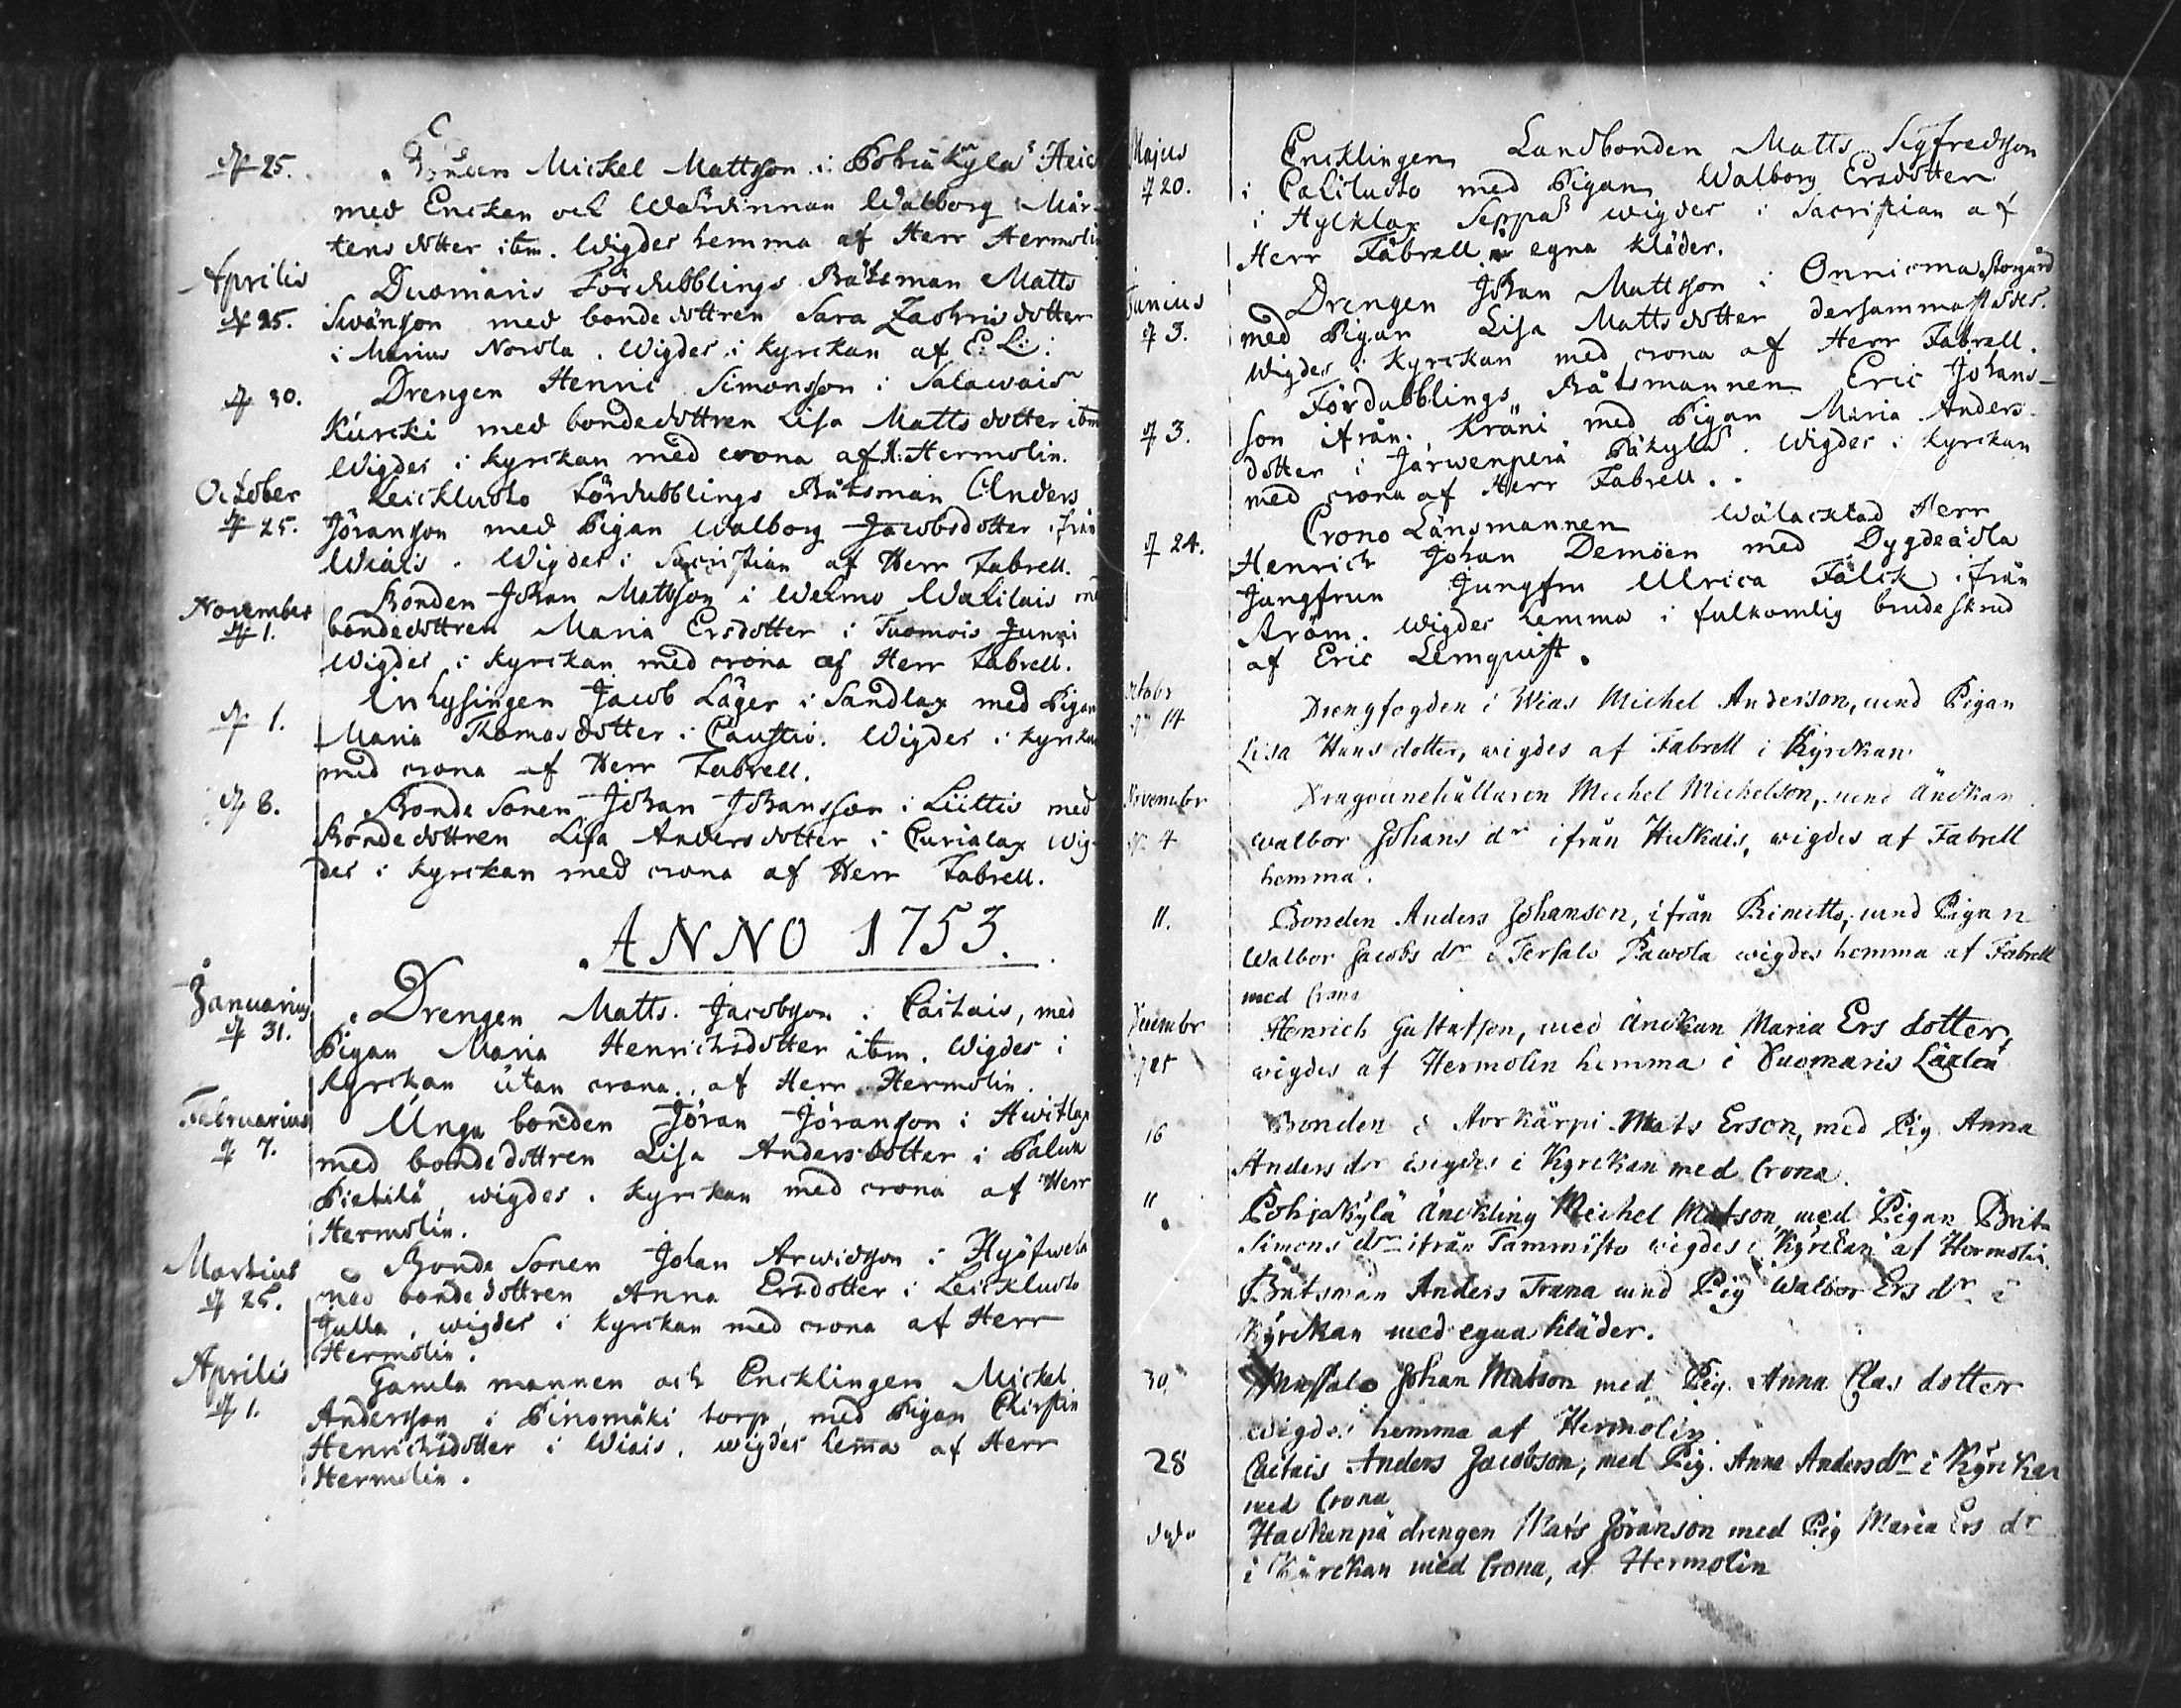 d. 25. Bonden Mickel Mattsson i Pohiakylä
med Enckan och Wärdinnan Walborg Mår-
tens dotter ibm. Wigdes hemma af Herr Hermolin
Aprilis Duomaris Fördubblings Båtsman Matts
d. 25. Swänson med bonde dottren Sara Zachris dotter
i Marius Nordla. Wigdes i kyrckan af E: L:
d. 30. Drengen Henric Simonsson i Salawais
Kurcki med bondedottren Lisa Matts dotter ibm
Wigdes i kyrckan med crona af H: Hermolin.
October Leickluoto fördubblings Båtsman Anders
d. 25. Jöranson med Pigan Walborg Jacobsdotter ifrån
Wiais. Wigdes i Sacristian af Herr Fabrell.
November Bonden Johan Mattsson i Welmo Walilais
d. 1. bondedottren Maria Ersdotter i Tuomois Junni
Wigdes i kyrckan med crona af Herr Fabrell.
d. 1. Inhysingen Jacob Läger i Sandlax med Pigan
Maria Thomasdotter i Caustio. Wigdes i kyrckan
med crona af Herr Fabrell.
d. 8. Bonde Sonen Johan Johansson i Liittis med
Bondedottren Lisa Andersdotter i Curialax Wig-
des i kyrckan med crona af Herr Fabrell.
ANNO 1753.
Januarius Drengen Matts Jacobsson i Caitais, med
d. 31. Pigan Maria Henrichsdotter ibm. Wigdes i
Kyrckan utan crona, af Herr Hermolin.
Februarius Unga bonden Jöran Jöranson i Hwitlax
d. 7. med bondedottren Lisa Andersdotter i Palwa
Pietilä wigdes i kyrckan med crona af Herr
Hermolin.
Martius Bonde Sonen Johan Arwidsson i
d. 25. med bondedottren Anna Ersdotter i Leickluoto
Julla, wigdes i kyrckan med crona af Herr
Hermolin.
Aprilis Gamla mannen och Encklingen Mickel
d. 1. Andersson i Pinomäki torp, med Pigan Chirstin
Henrichsdotter i Wiais. wigdes hemma af Herr
Hermolin.
Majus Encklingen Landbonden Matts Sigfredsson
d. 20. i Caliluoto med Pigan Walborg Ersdotter
i Hylklax Seppas wigdes i Sacristian af
Herr Fabrell i egna kläder.
Junius Drengen Johan Mattsson i Onnicma Storgård
d. 3. med Pigan Lisa Mattsdotter dersammastädes.
Wigdes i kyrckan med crona af Herr Fabrell.
Fördubblings Båtsmannen Eric Johans-
d. 3. son ifrån Kräni med Pigan Maria Anders-
dotter i Järwenperä Päkylä. Wigdes i kyrckan
med crona af Herr Fabrell.
Crono Länsmannen Wälacktad Herr
d. 24. Henrich Johan Demoen med Dygdeädla
Jungfrun Jungfru Ulrica Falck ifrån
Ström. Wigdes hemma i fulkomlig brudeskrud
af Eric Lemquist.
octobr Drengfogden i Wias Michel Anderson, med Pigan
d. 14 Lisa Hans dotter, wigdes af Fabrell i Kyrckan
Novembr Dragounehållaren Michel Michelson, med Änckan
d. 4 Walbor Johans dr ifrån Huckais, wigdes af Fabrell
hemma.
11. Bonden Anders Johanson, ifrån Rimitto, med Pigan
Walbor Jacobs dr i Tersalo Pawola wigdes hemma af Fabrell
med Crona
Decembr Henrich Gustafson, med änckan Maria Ers dotter,
wigdes af Hermolin hemma i Duomaris
16 Bonden i Korkärpi Mats Erson, med Pig Anna
Anders dr wigdes i Kyrckan med Crona.
" Pohjakylä änckling Michel Matson med Pigan Brita
Simons dr ifrån Tammisto wigdes i Kyrckan af Hermolin.
Båtsman Anders Trana med Pig Walbor Ers dr i
Kyrckan med egna kläder.
30 Mussalo Johan Matson med Pig. Anna Clas dotter
wigdes hemma af Hermolin.
28 Caitais Anders Jacobson, med Pig. Anna Anders dr i Kyrckan
med Crona
dydo Hackenpä drengen Mats Jöranson med Pig Maria Ers dr
i Kyrckan med Crona, af Hermolin